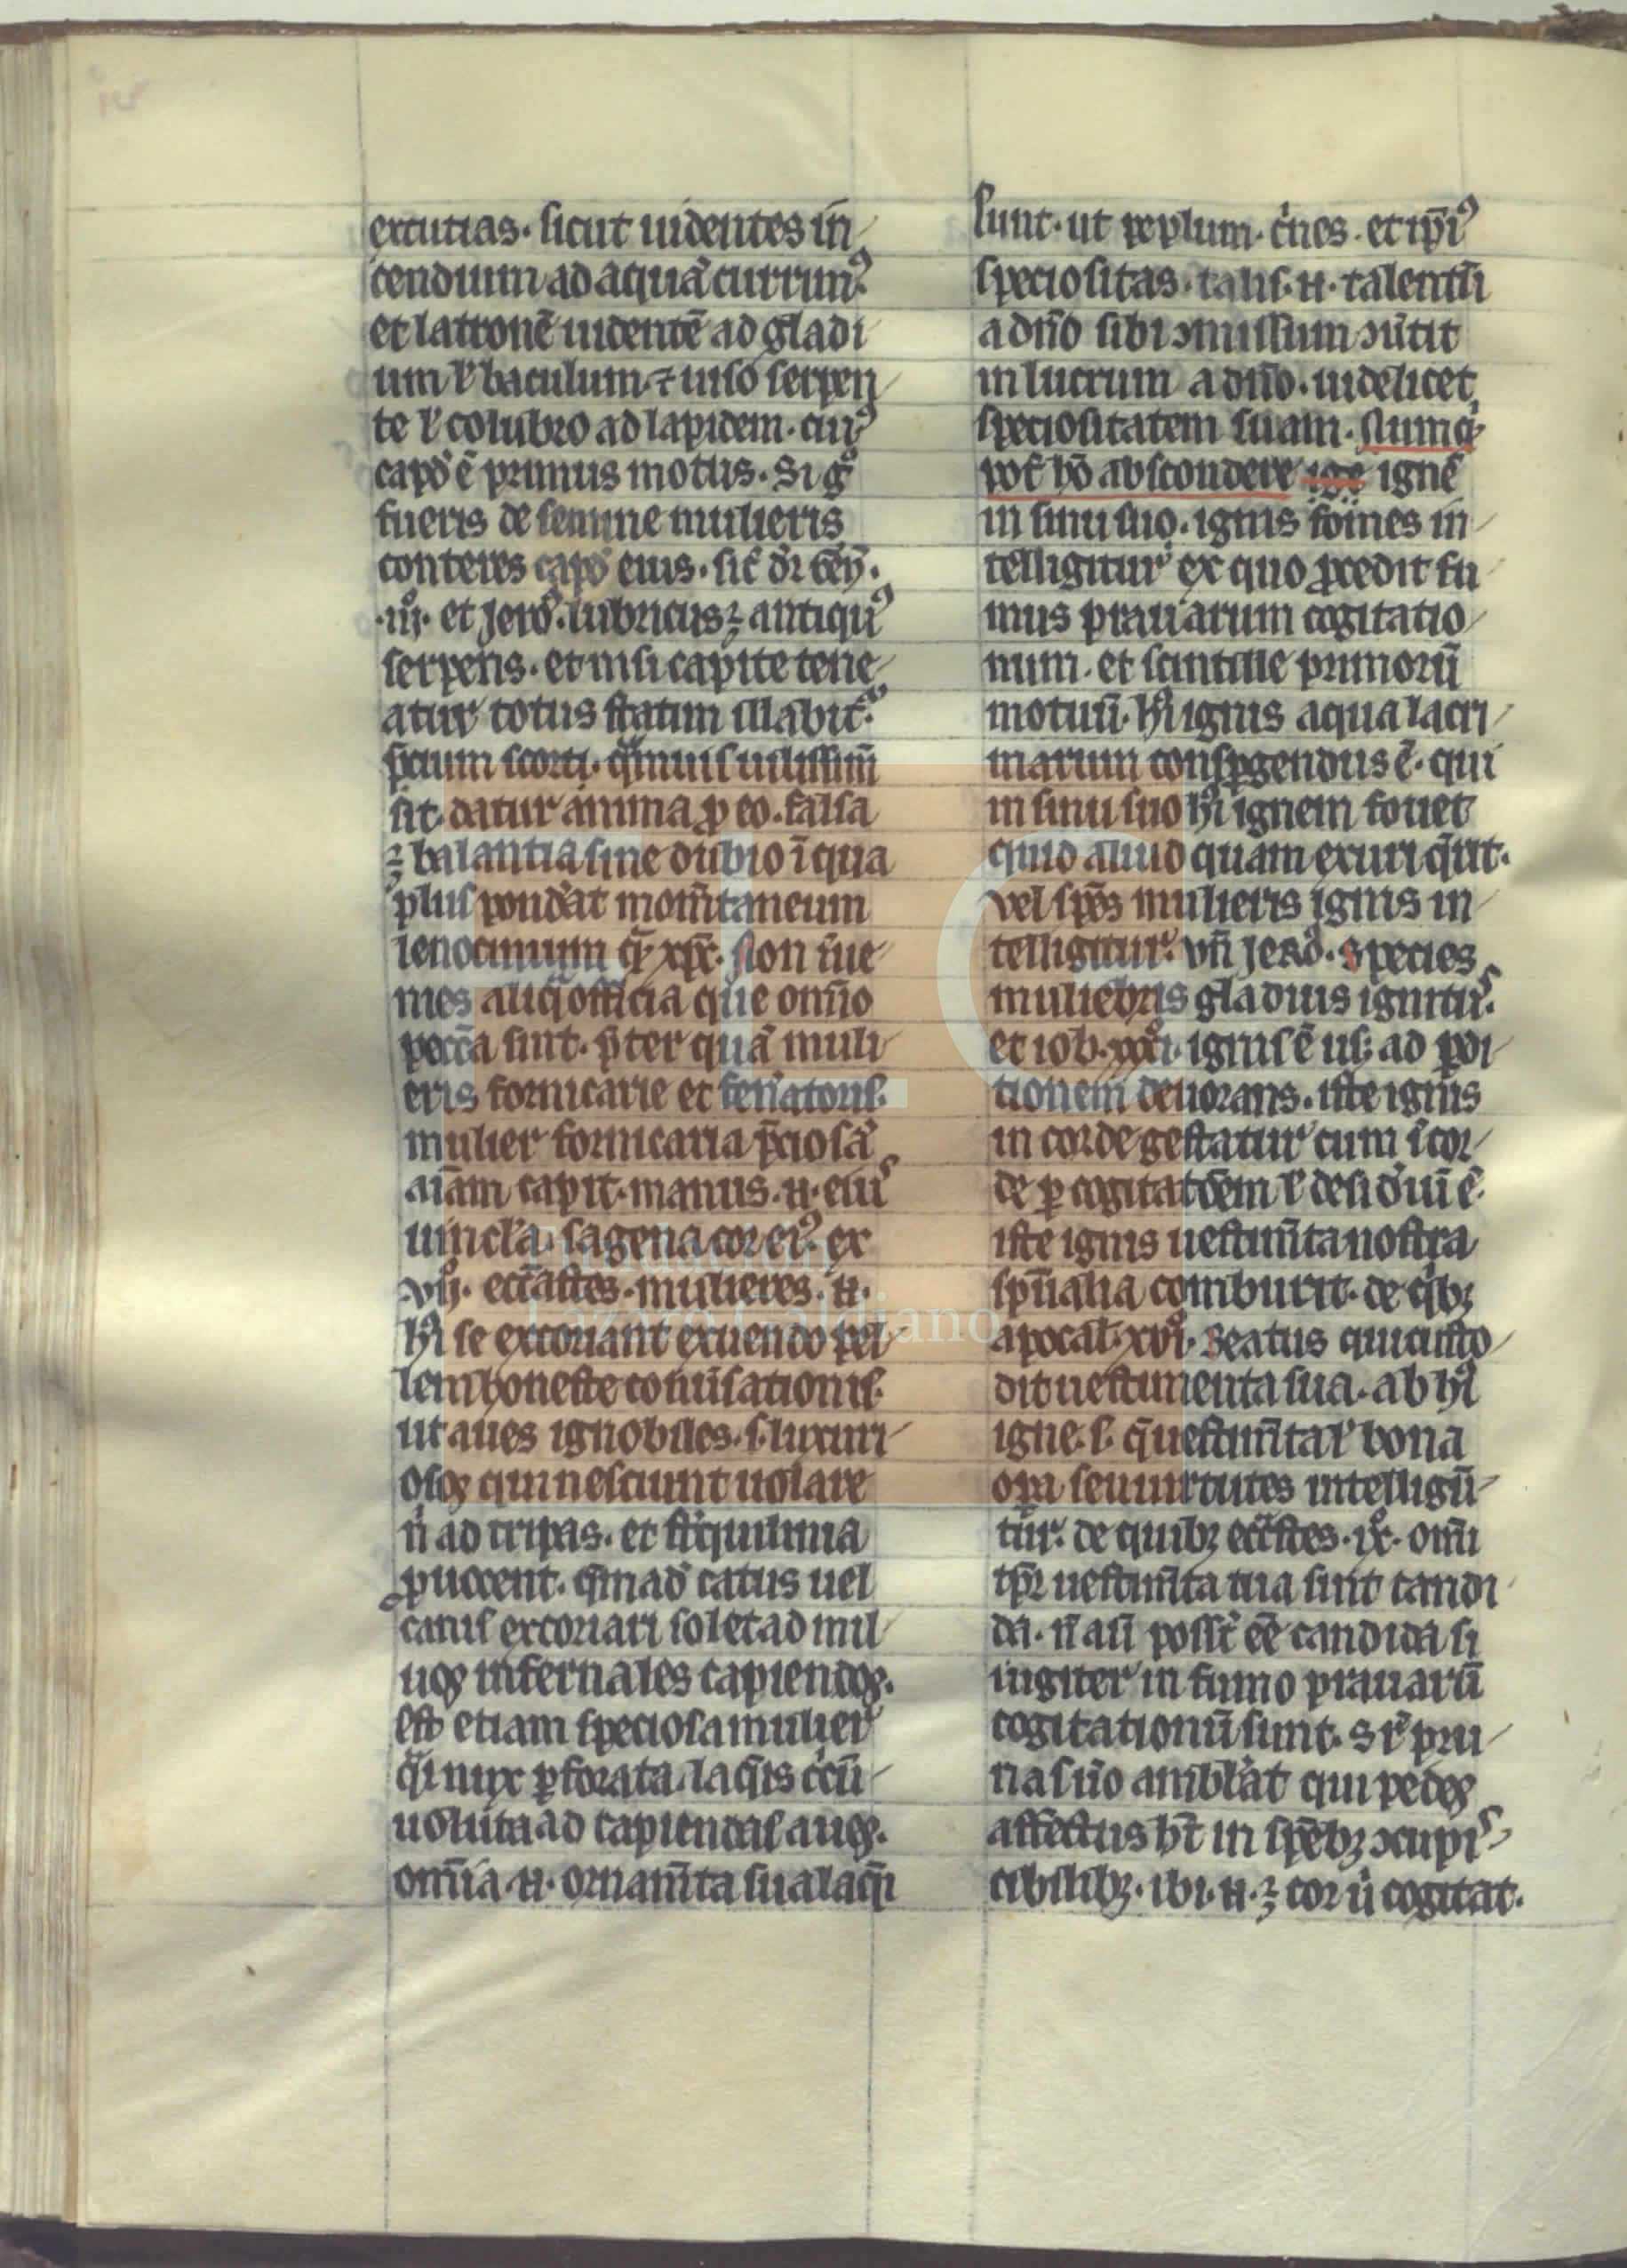 excutias. sicut uidentes in
cendium ad aquã currunꝰ
et latronẽ uidentẽ ad gladi
um ł baculum. ⁊ uiso serpen
te ł colubro ad lapidem. cuiꝰ
capđ ẽ primus motus. Si gͦ
fueris de semine mulieris
conteres capđ eius. sic̃ dr̃ Geñ.
.iijͦ. et Jeroͦ. lubricus ꝫ antiquꝰ
serpens. et nisi capite tene
atur totus statim illabit̃.
p̃cium scorti. q̃muis uilissim̃
sit. datur anima ꝓ eo. falsa
ꝫ balantia sine dubio ĩ qua
plus pond̃at mom̃taneum
lenocinium q̃ xp̃c. Non inue
nies aliq̃ officia que om̃io
pecc̃a sint. p̃ter quã muli
eris fornicarie et fen̾atoris.
mulier fornicaria p̃ciosã
aĩam capit. manus .n. eiuˢ
uincl̾a. sagena cor eiꝰ. ex
vijͦ. ecc̃astes. mulieres .n.
hͥ se excoriant exuendo pel
lem honeste conũsationis.
ut aues ignobiles. s. luxuri
osos qui nesciunt uolare
ñ ad tripas. et st̾quilinia
ꝓuocent. q̃mađ catus uel
canis excoriari solet ad mil
uos infernales capiendos.
est etiam speciosa mulier
q̃i nux ꝑforata laq̃is c̾cũ
uoluta ad capiendas aues.
om̃ia .n. ornam̃ta sua laq̃i
sunt. ut peplum. c̾nes. et ip̃iꝰ
speciositas. talis .n. talentũ
a dño sibi ꝯmissum ꝯũtit
in lucrum a dño. uidelicet
speciositatem suam. Nunq̾
pot̃ hõ abscondere ige ignẽ
in sinu suo. ignis fomes in
telligitur ex quo ꝓcedit fu
mus prauarum cogitatio
num. et scintille primorũ
motuũ. hͥ ignis aqua lacri
marum conspgendus ẽ. qui
in sinu suo hͥ ignem fouet
quid aliud quam exuri q̃rit.
vel sp̃es mulieris ignis in
telligitur. vñ Jeroͦ. Species
muliebris gladius ignituˢ.
et iob. xxxͦi. ignis ẽ usꝫ ad ꝑdi
tionem deuorans. iste ignis
in corde gestatur cum ĩ cor
de ꝑ cogitat̃oem ł desid̾iũ ẽ.
iste ignis uestim̃ta nostra
sp̃ualia comburit. de q̾bꝫ
apocal̃. xviͦ. Beatus qui custo
dit uestimenta sua. ab hͥ
igne. s. q̃ uestim̃ta ł bona
opa seu uirtutes intelligũ
tur. de quibꝫ ecc̃stes. ixͦ. om̃i
tp̃r uestim̃ta tua sint candi
da. ñ aũ possũt eẽ candida si
iugiter in fumo prauarũ
cogitationũ sunt. Sr̃ pru
nas ũo ambl̾at qui pedes
affectus hẽt in sp̃ebꝫ ꝯcupiˢ
cibilibꝫ. ibi .n. ꝫ cor ũ cogitat.
Lázaro Galdiano